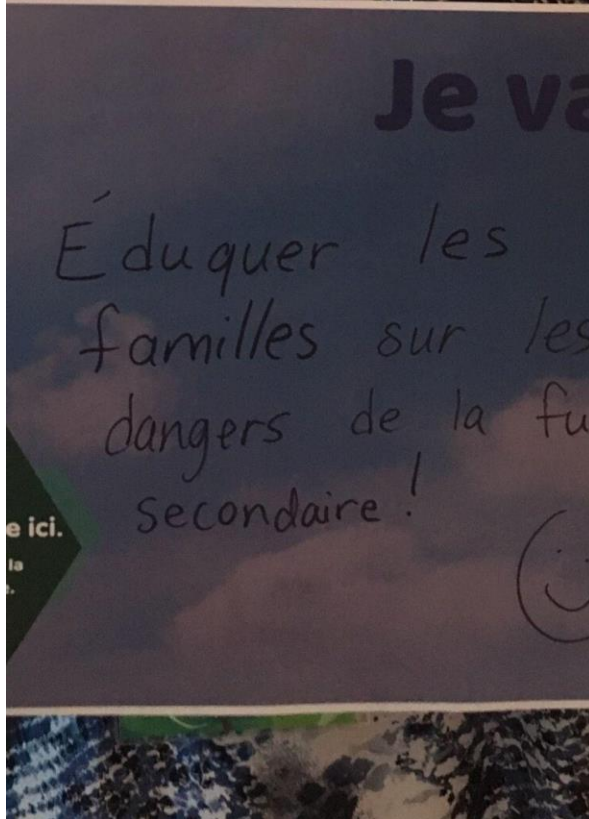 Je va
Éduquer les
familles sur les
dangers de la fu
secondaire!
e ici.
la
e.